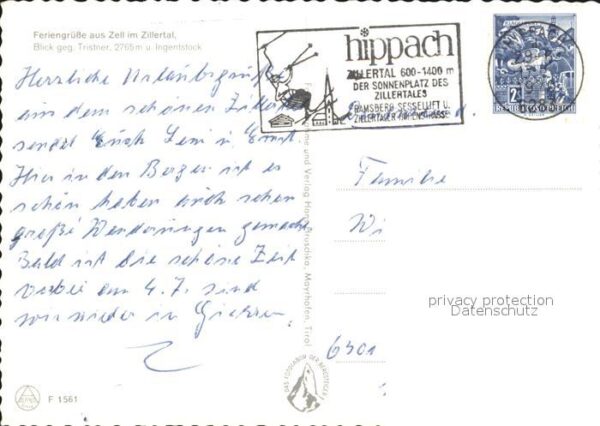 Feriengrüße aus Zell im Zillertal,
Blick geg. Tristner, 2765m u. Ingentstock
hippach
ZILLERTAL 600-1400 m
DER SONNENPLATZ DES
ZILLERTALES
RAMSBERG SESSELLIFT U.
ZILLERTALER HÖHENSTRASSE
HIPPACH
2
REPUBLIK ÖSTERREICH
Herrliche Urlaubsgrüße
aus dem schönen Zillertal
sendet Euch u. Ernst.
Hier in den Bergen ist es
schön haben auch schon
große Wanderungen gemacht
Bald ist die schöne Zeit
vorbei am 4.7. sind
wir wieder in Giessen.
Familie
Wi
6301
Verlag Mayrhofen, Tirol
DAS EDITION DER BERGSTEIGER
privacy protection
Datenschutz
F 1561